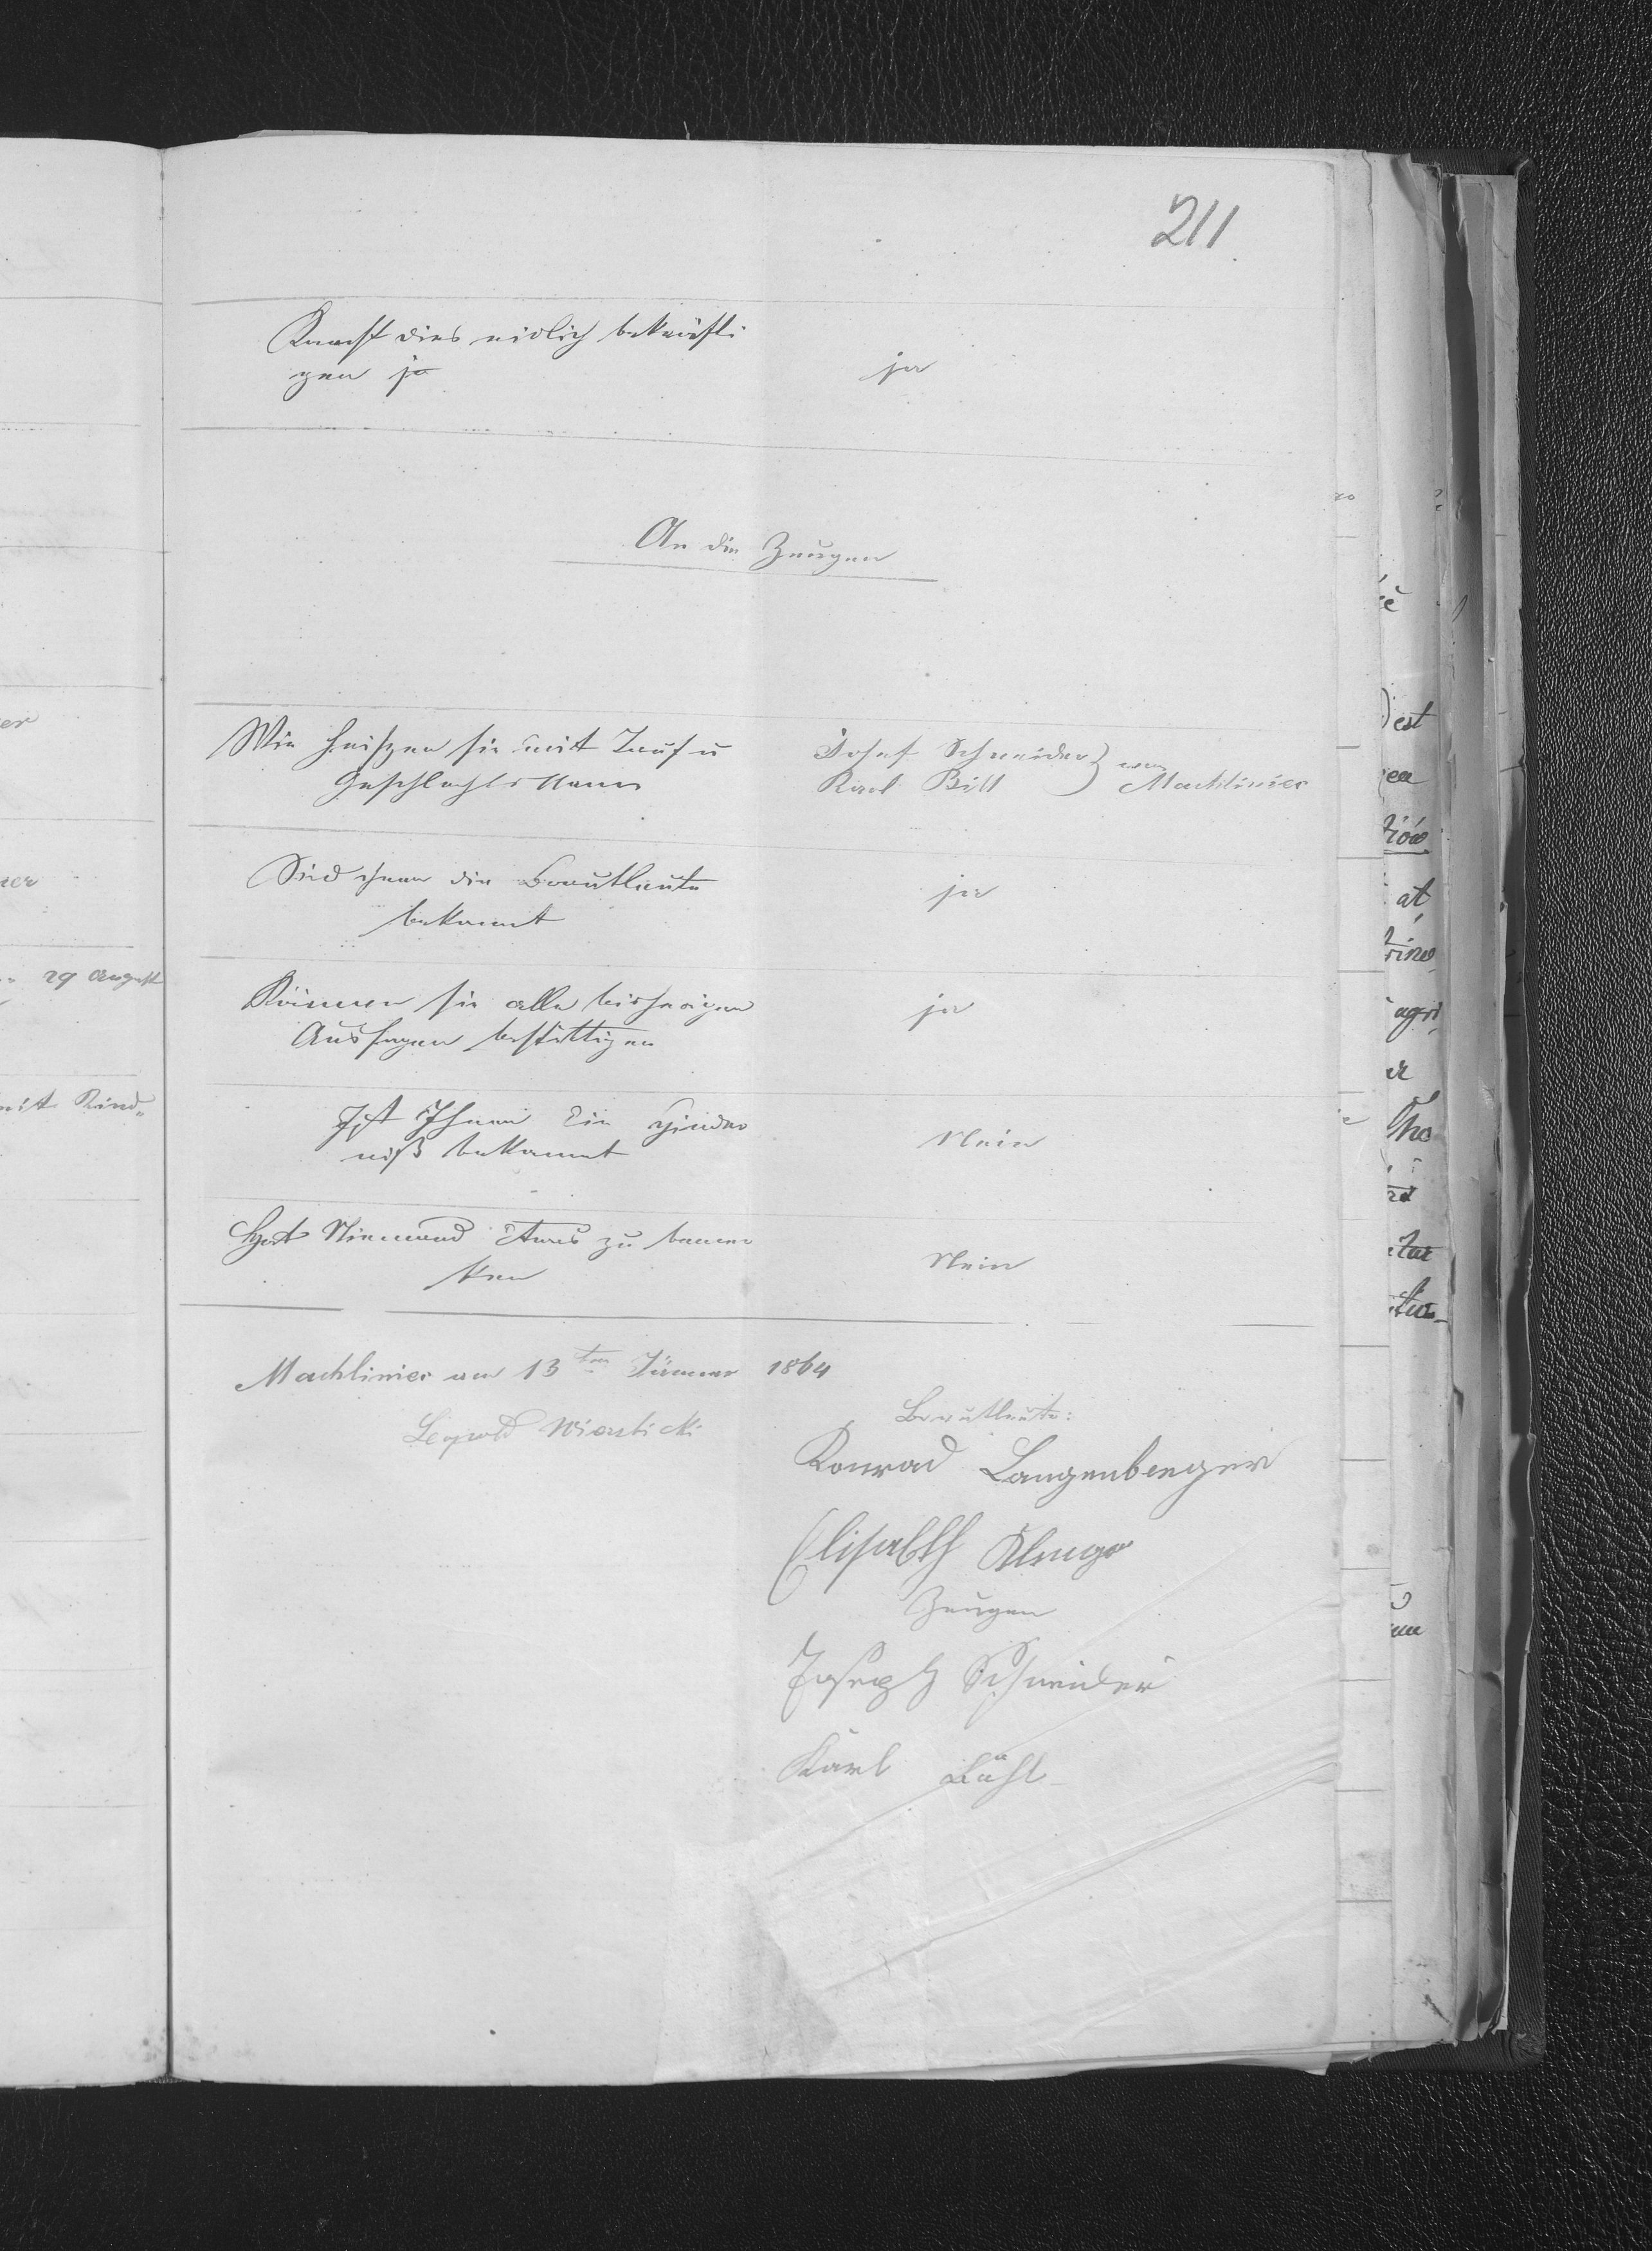 211
Kannst dies eidlich bekräfti
gen ja
ja
An die Zeugen
Wie heißen sie mit Tauf u
Geschlechts Namen
Josef Schneider } von
Karl Bill } Machliniec
Sind ihnen die Brautleute
bekannt
ja
Können sie alle bisherigen
Aussagen bestättigen
ja
Ist Ihnen Ein Hinder
niß bekannt
Nein
Hat Niemand Etwas zu bemer
ken
Nein
Machliniec am 13ten Jänner 1864
Leopold
Brautleute:
Konrad Langenberger
Elisabth
Zeugen
Joseph Schneider
Karl
29 August
mit Rind